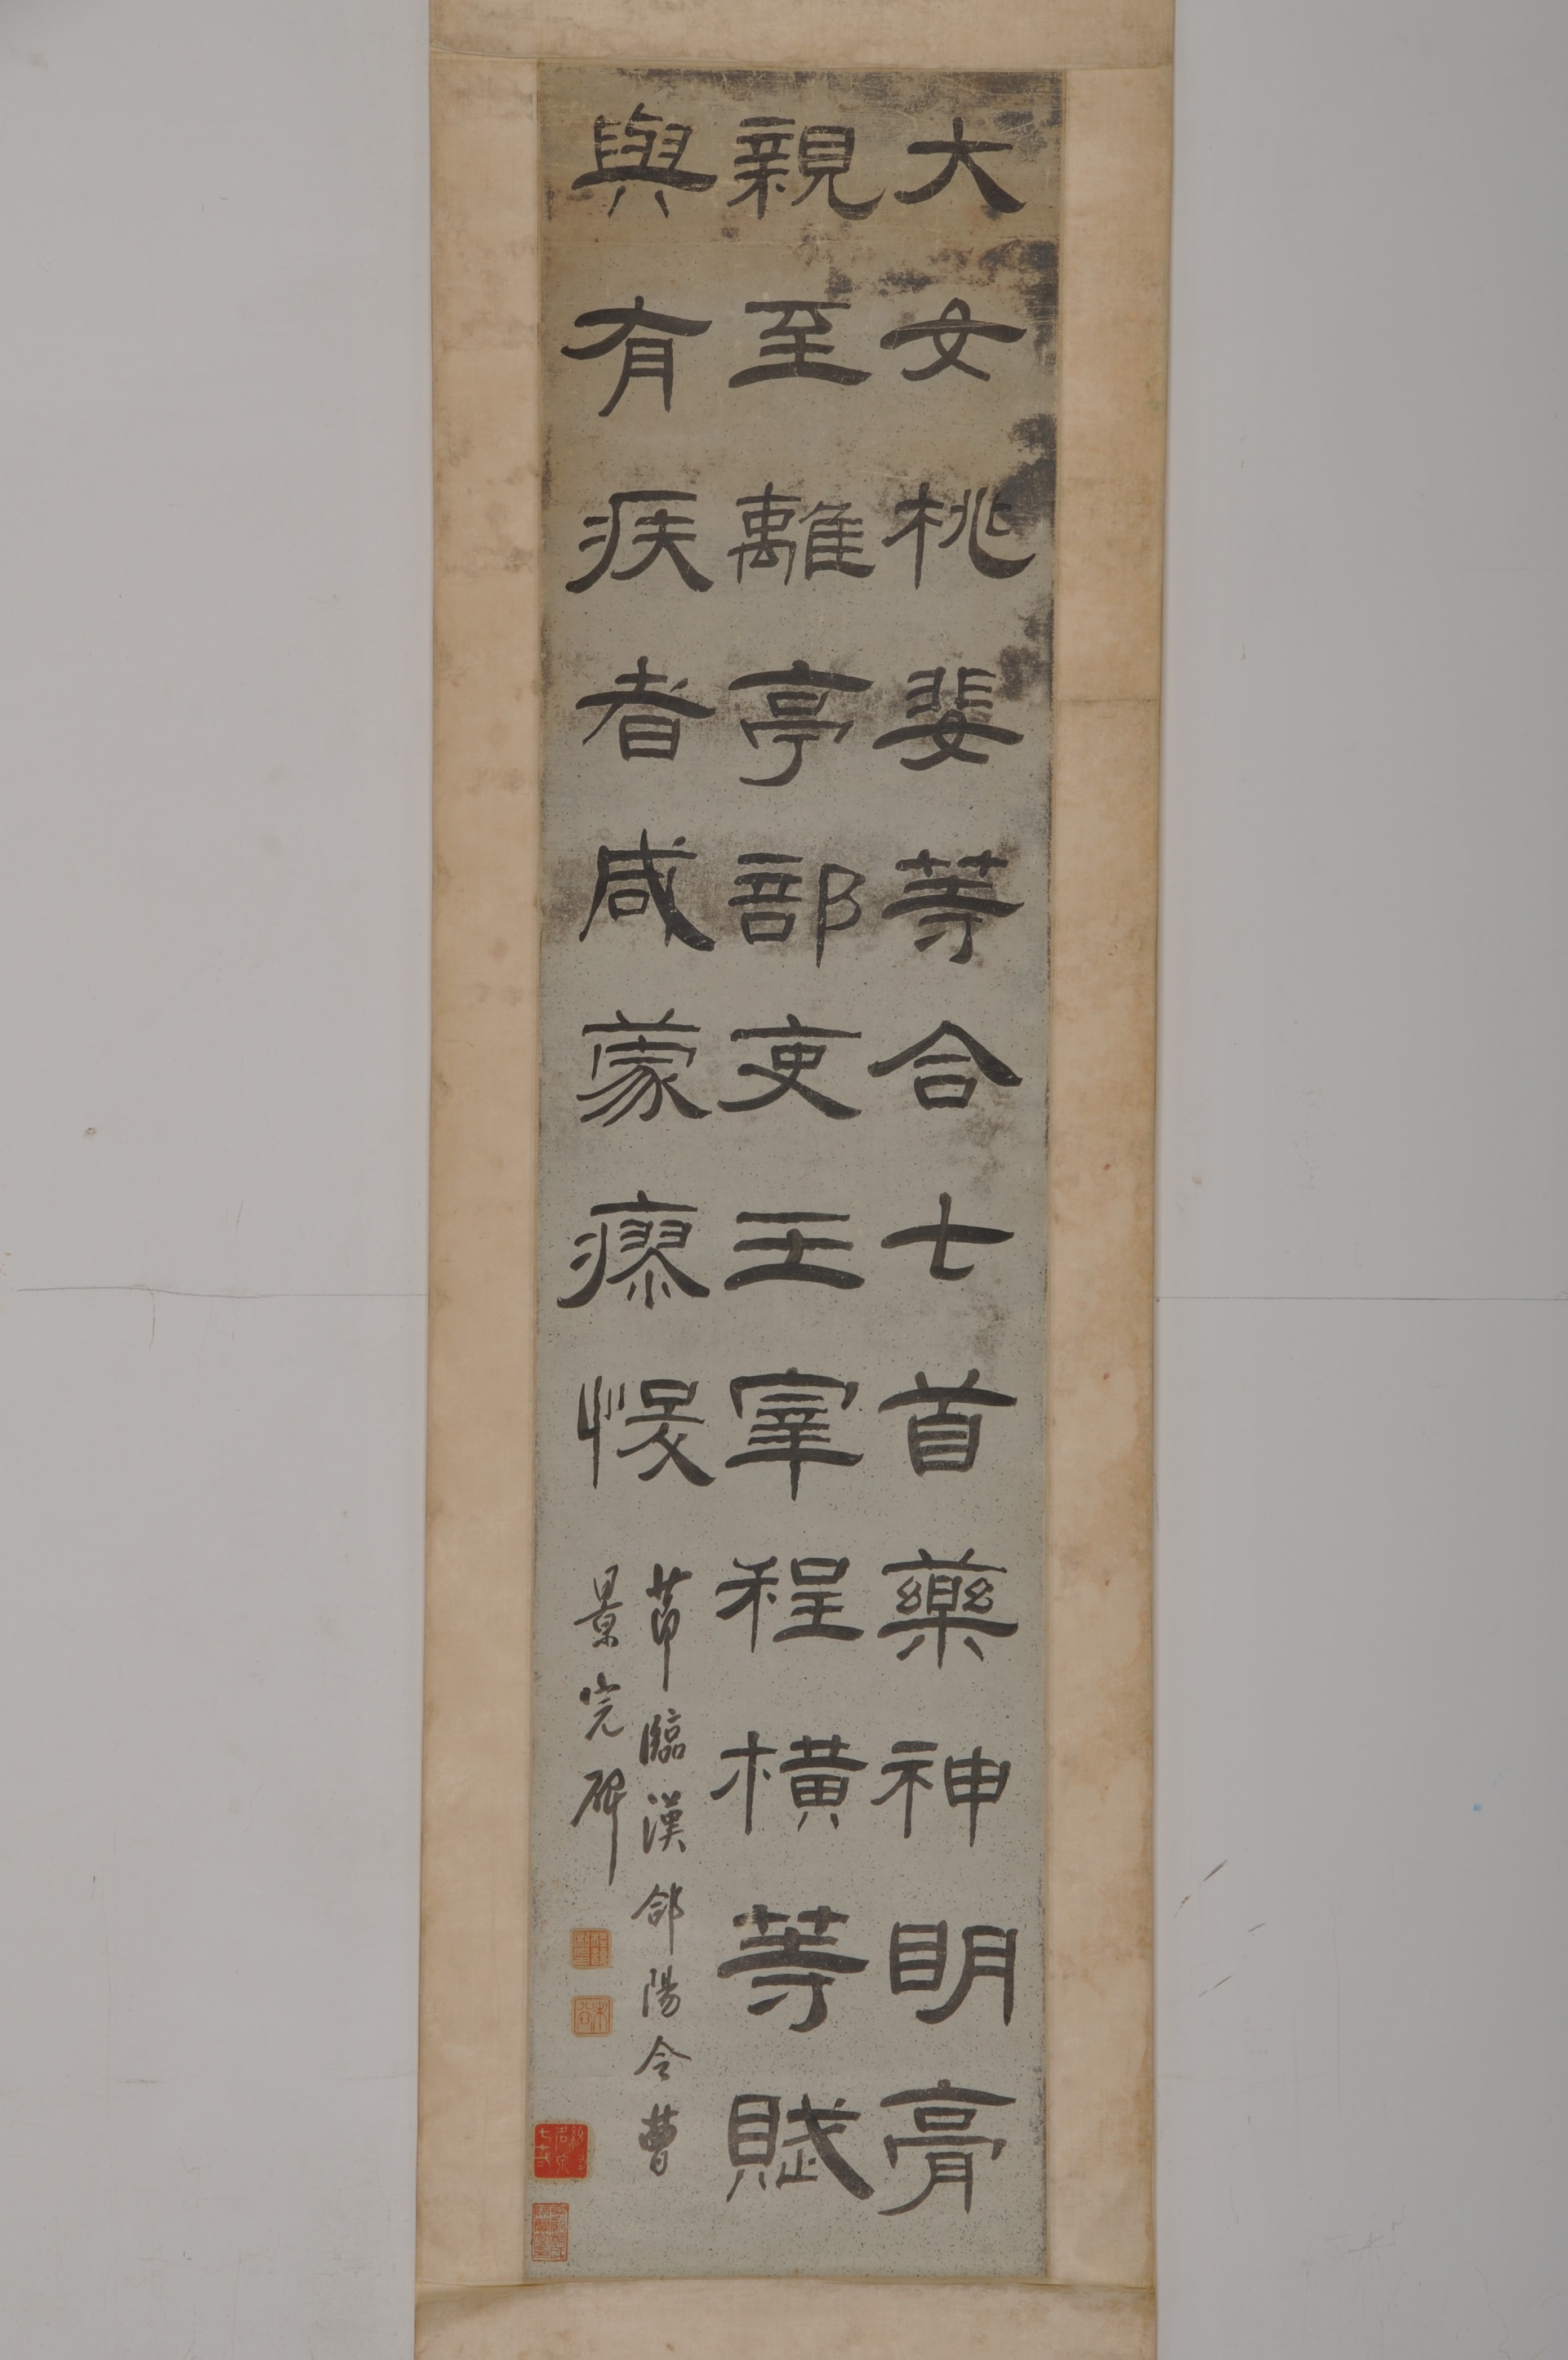 大女桃婓等合七首藥神明膏
親至離亭部吏王宰程橫等賦
與有疾者咸蒙瘳悛
節臨漢郃陽令曹
景完碑